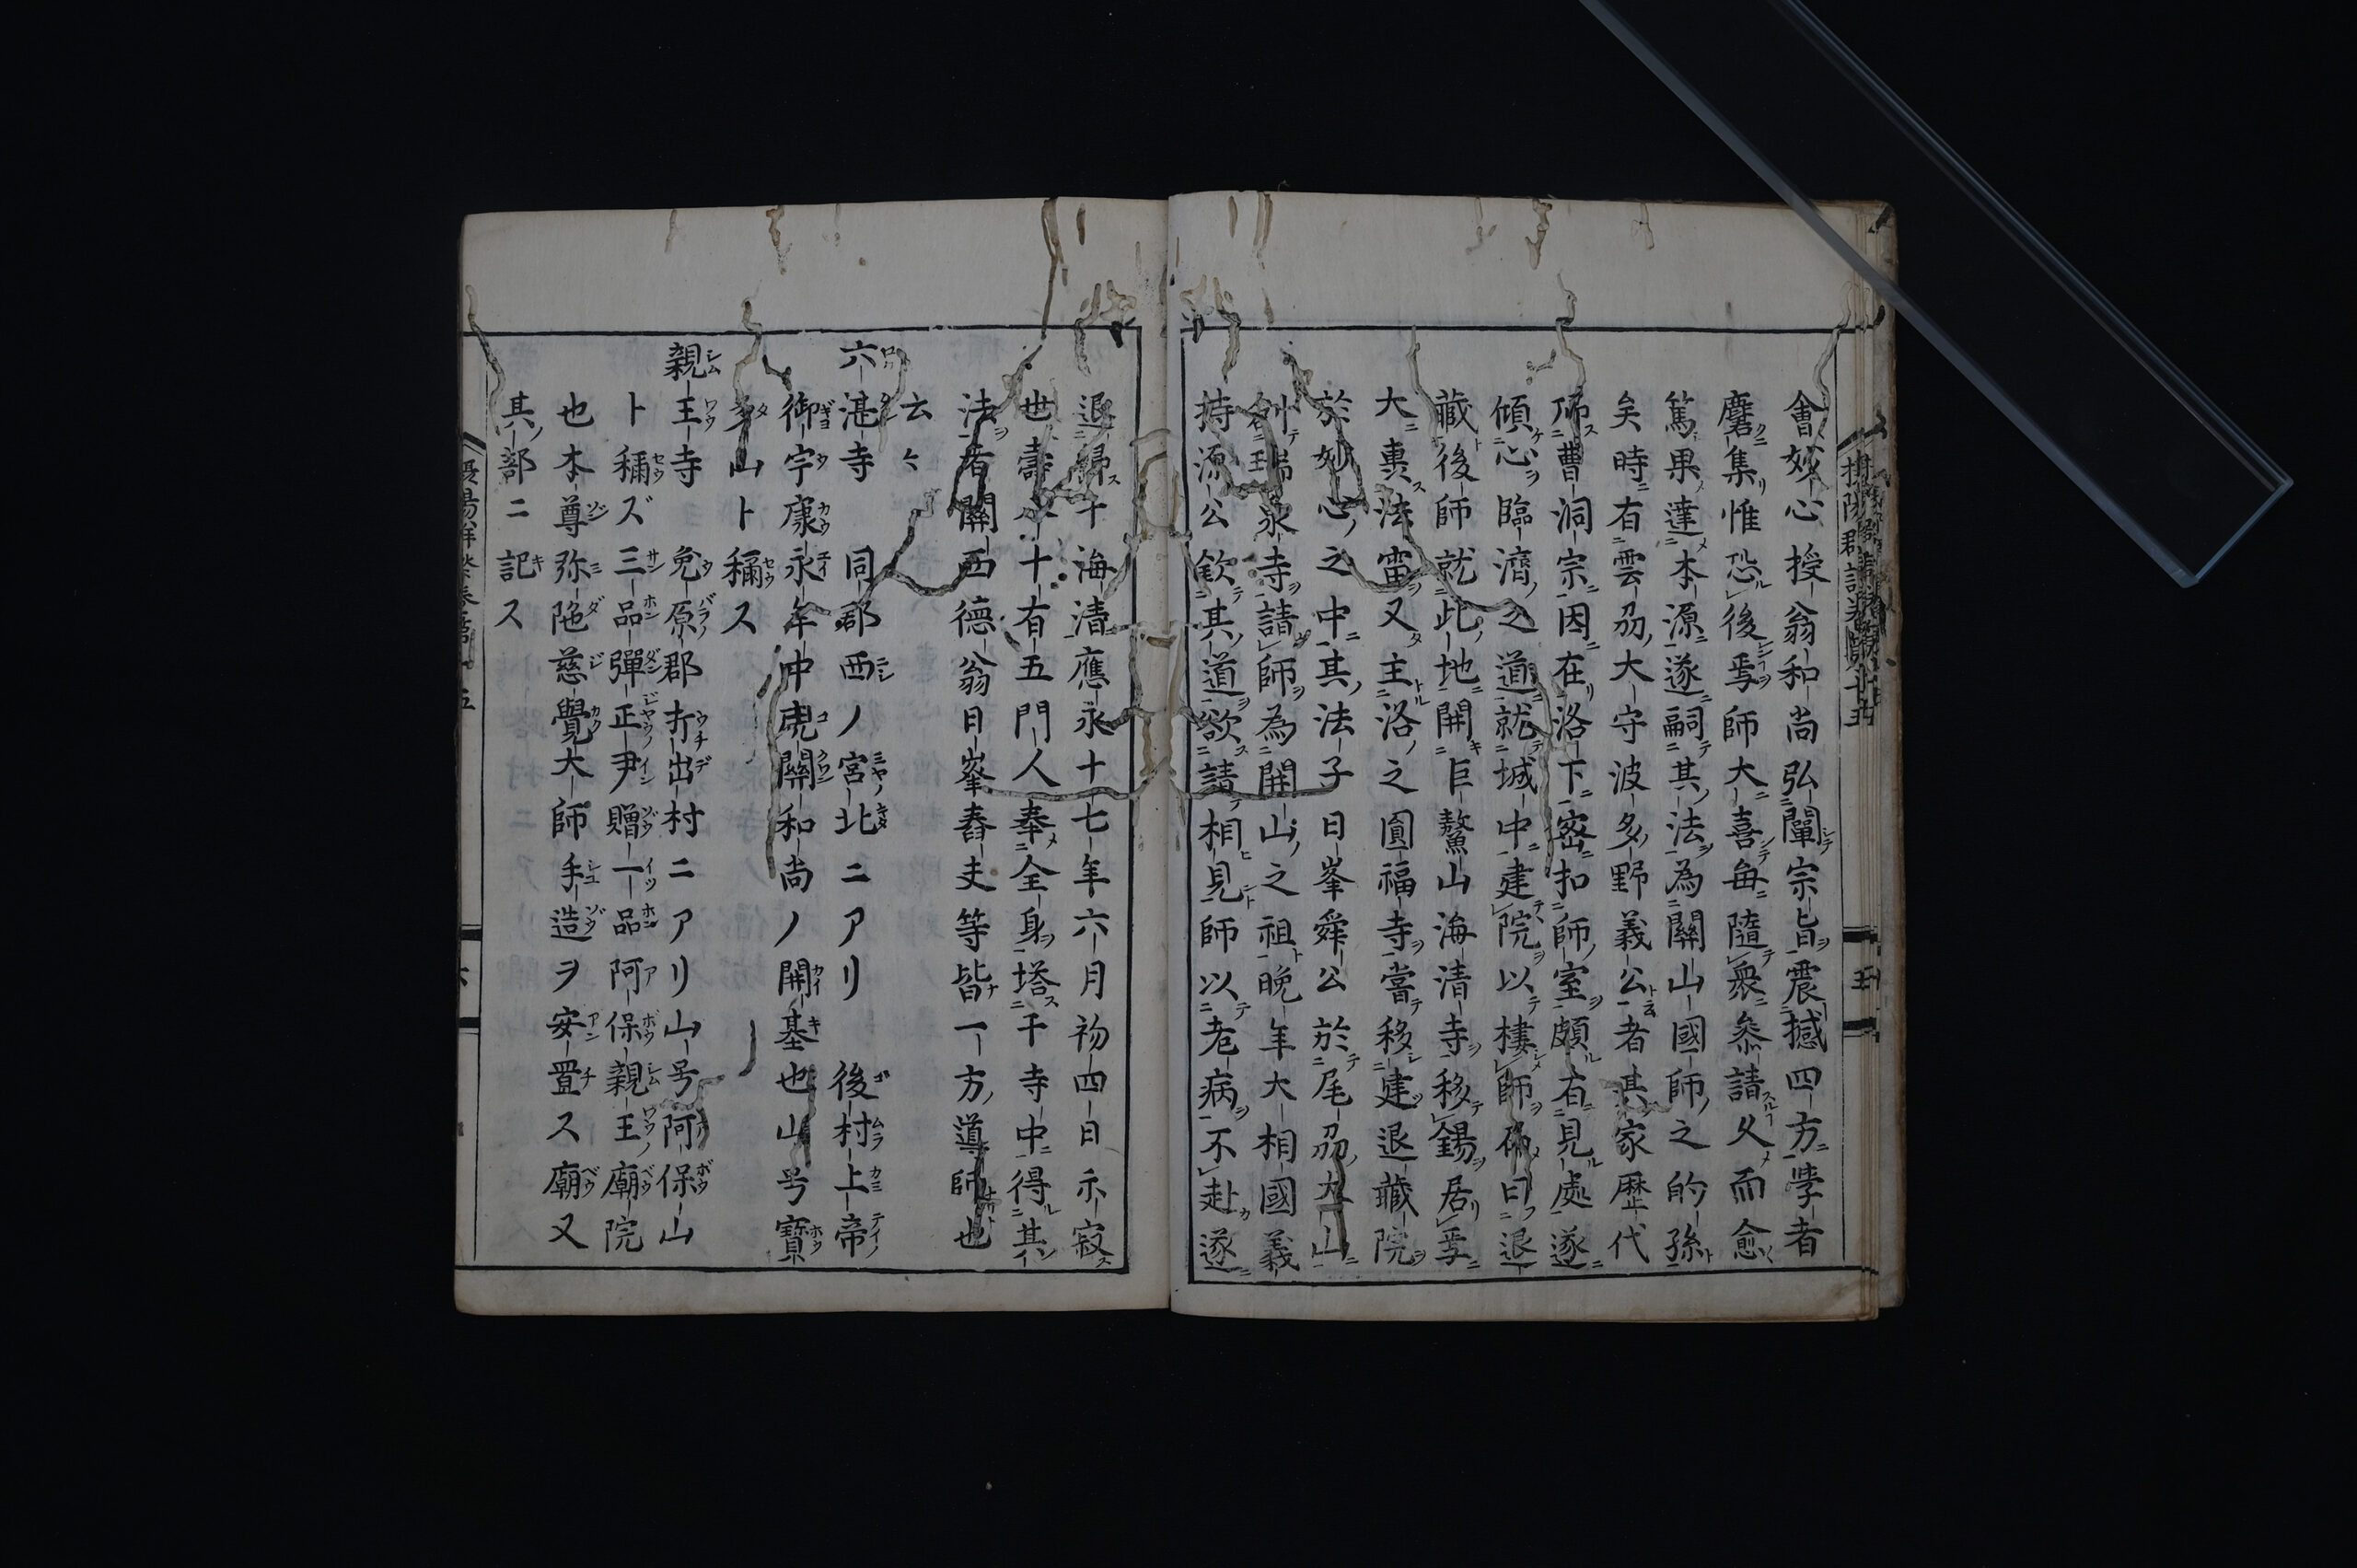 會妙心授翁和尚弘闡宗旨震撼四方學者
麕集惟恐後焉師大喜毎隨衆參請久而愈
篤果達本源遂嗣其法為關山國師之的孫
矣時有雲刕大守波多野義公者其家歴代
師曹洞宗因在洛下密扣師室頗有見處遂
傾心臨濟之道就城中建院以棲師 曰退
藏後師就此地開巨鰲山海清寺移錫居焉
大裏法雷又主洛之圓福寺嘗移建退藏院
於妙心之中其法子日峯舜公於尾刕 山
瑞泉寺請師為開山之祖晩年大相國義
持源公欽其道欲請相見師以老病不赴遂
退歸海清應永十七年六月初四日示寂
世壽 十有五門人奉全身塔于寺中得其
法者關西德翁日峯舂夫等皆一方導師也
云々
六湛寺 同郡西ノ宮北ニアリ 後村上帝
御宇康永年中虎關和尚ノ開基也山号寳
山ト穪ス
親王寺 兔原郡打出村ニアリ山号阿保山
ト穪ズ三品彈正尹贈一品阿保親王廟院
也本尊弥陁慈覺大師手造ヲ安置ス廟又
其部ニ記ス